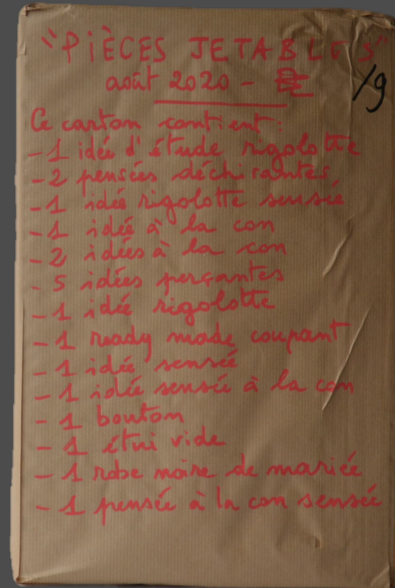 "PIÈCES JETABLES"
août 2020 -
/9
Ce carton contient :
- 1 idée d'étude rigolotte
- 2 pensées déchirantes
- 1 idée rigolotte sensée
- 1 idée à la con
- 2 idées à la con
- 5 idées perçantes
- 1 idée rigolotte
- 1 ready made coupant
- 1 idée sensée
- 1 idée sensée à la con
- 1 bouton
- 1 étui vide
- 1 robe noire de mariée
- 1 pensée à la con sensée